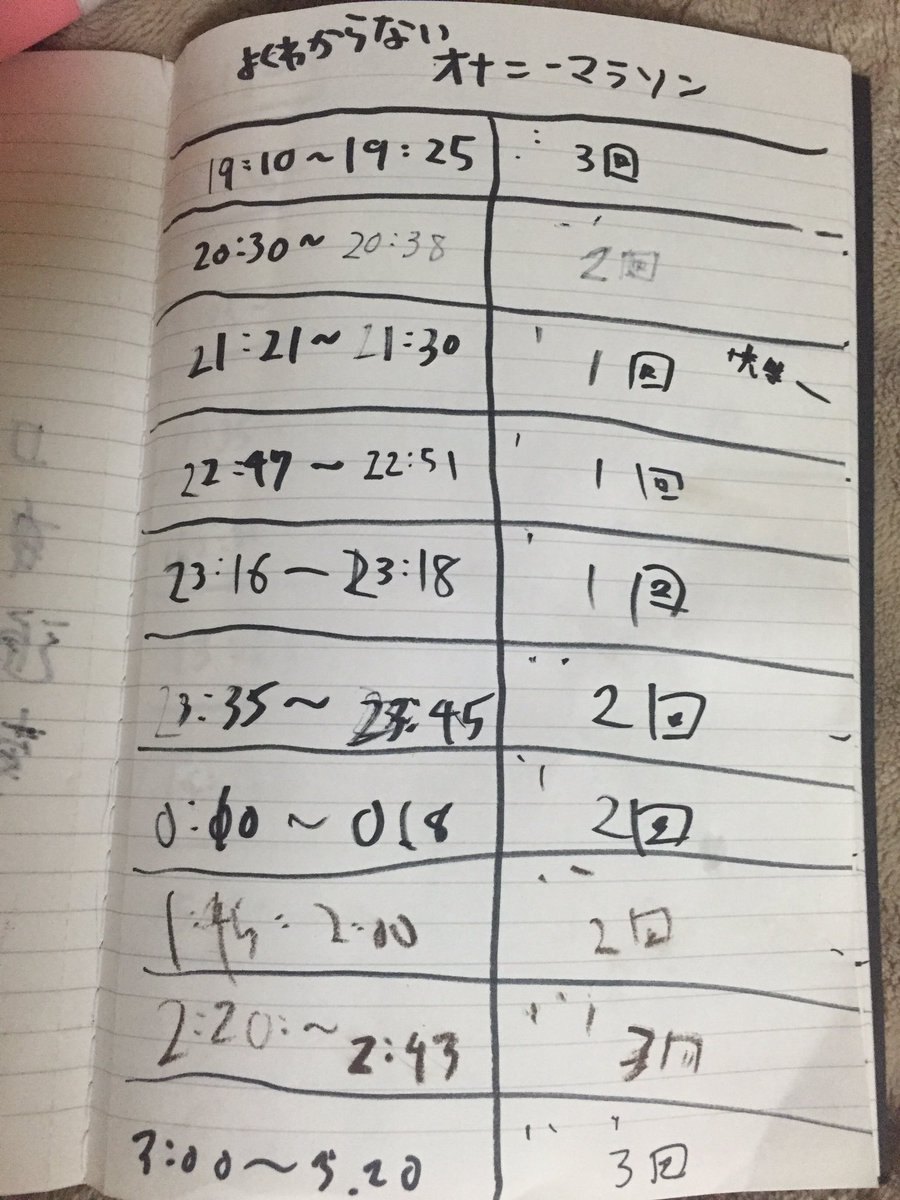 よくわからない
オナニーマラソン
19:10～19:25 3回
20:30～20:38 2回
21:21～21:30 1回
22:47～22:51 1回
23:16～23:18 1回
23:35～23:45 2回
0:00～018 2回
2:00 2回
2:20:～2:43 3回
3:00～3.20 3回